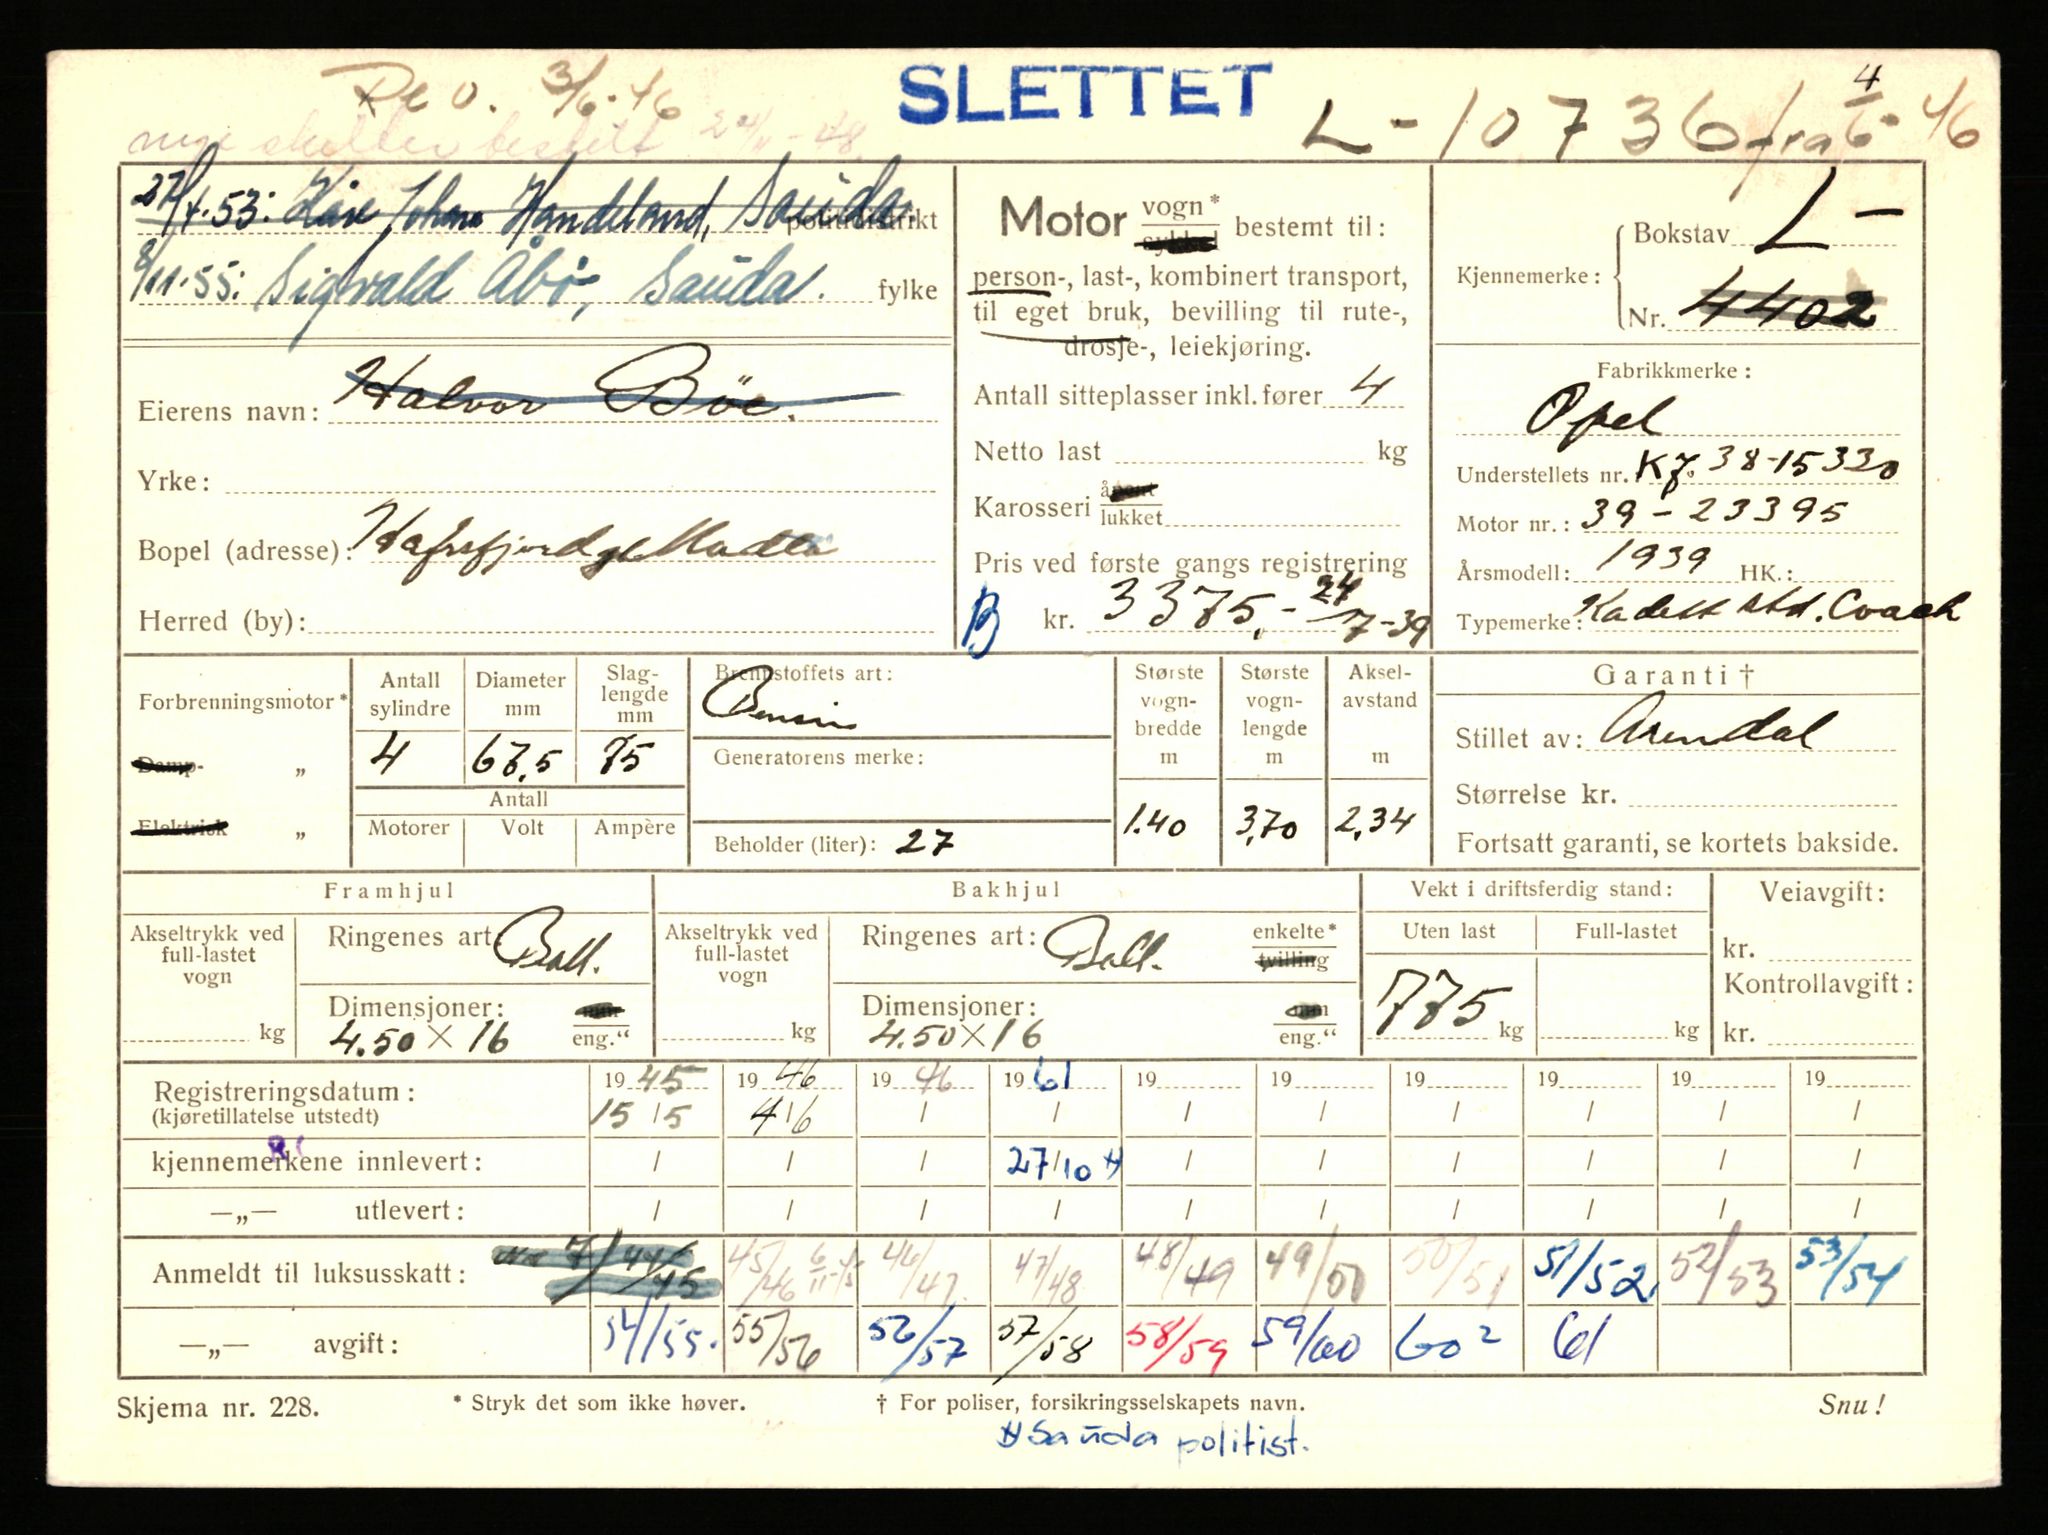 Rev. 3/6-46
SLETTET
L-10736 fra 4/6-46
nye skilter bestilt 24/11-48.
27/4.53: Kåre Johan Handeland, Sauda. politidistrikt
8/11.55: Sigvald Åbø, Sauda. fylke
Eierens navn: Halvor Böe.
Yrke:
Bopel (adresse): Hafrsfjordgt Madla
Herred (by):
Motor vogn* sykkel bestemt til:
person-, last-, kombinert transport,
til eget bruk, bevilling til rute-,
drosje-, leiekjøring.
Antall sitteplasser inkl. fører 4
Netto last kg
Karosseri åpent lukket
Pris ved første gangs registrering
B kr. 3375,- 24/7-39
Kjennemerke: Bokstav L-
Nr. 4402
Fabrikkmerke:
Opel
Understellets nr. KJ. 38-15330
Motor nr.: 39-23395
Årsmodell: 1939 HK.:
Typemerke: Kadett std. Coach
Forbrenningsmotor*
Damp- „
Elektrisk „
Antall sylindre 4
Diameter mm 67,5
Slaglengde mm 75
Antall
Motorer Volt Ampère
Brennstoffets art: Bensin
Generatorens merke:
Beholder (liter): 27
Største vognbredde m 1.40
Største vognlengde m 3,70
Akselavstand m 2,34
Garanti †
Stillet av: Arendal
Størrelse kr.
Fortsatt garanti, se kortets bakside.
Framhjul
Akseltrykk ved full-lastet vogn kg
Ringenes art: Ball.
Dimensjoner: mm
4.50 × 16 eng.“
Bakhjul
Akseltrykk ved full-lastet vogn kg
Ringenes art: Ball. enkelte* tvilling
Dimensjoner: mm
4.50 × 16 eng.“
Vekt i driftsferdig stand:
Uten last Full-lastet
775 kg kg
Veiavgift:
kr.
Kontrollavgift:
kr.
Registreringsdatum: 1945 1946 1946 1961 19 19 19 19 19 19
(kjøretillatelse utstedt) 15/5 4/6 / / / / / / / /
kjennemerkene innlevert: / / / 27/10 # / / / / / /
—„— utlevert: / / / / / / / / / /
Anmeldt til luksusskatt: 7/44/45 45/46 6/11-45 46/47 47/48 48/49 49/50 50/51 51/52 52/53 53/54
—„— avgift: 54/55. 55/56 56/57 57/58 58/59 59/60 60² 61
Skjema nr. 228. * Stryk det som ikke høver. † For poliser, forsikringsselskapets navn. Snu!
# Sauda politist.